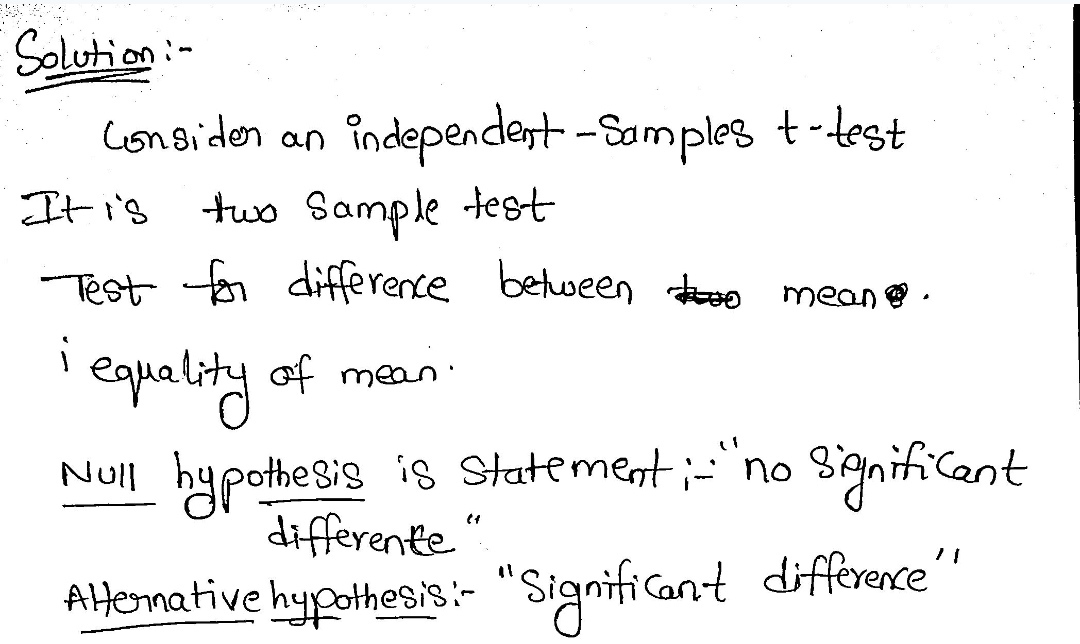 Solution :-
Consider an independent - Samples t-test
It is two Sample test
Test for difference between two mean.
i equality of mean.
Null hypothesis is Statement :- "no Significant
difference"
Alternative hypothesis :- "Significant difference"